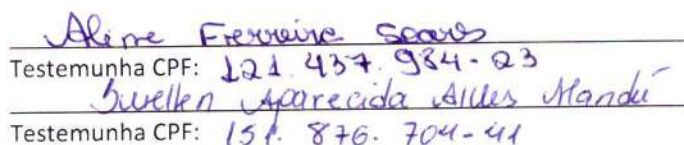 Aline Ferreira Soares
Testemunha CPF: 121.437.984-23
Suellen Aparecida Alves Mandú
Testemunha CPF: 151.876.704-41